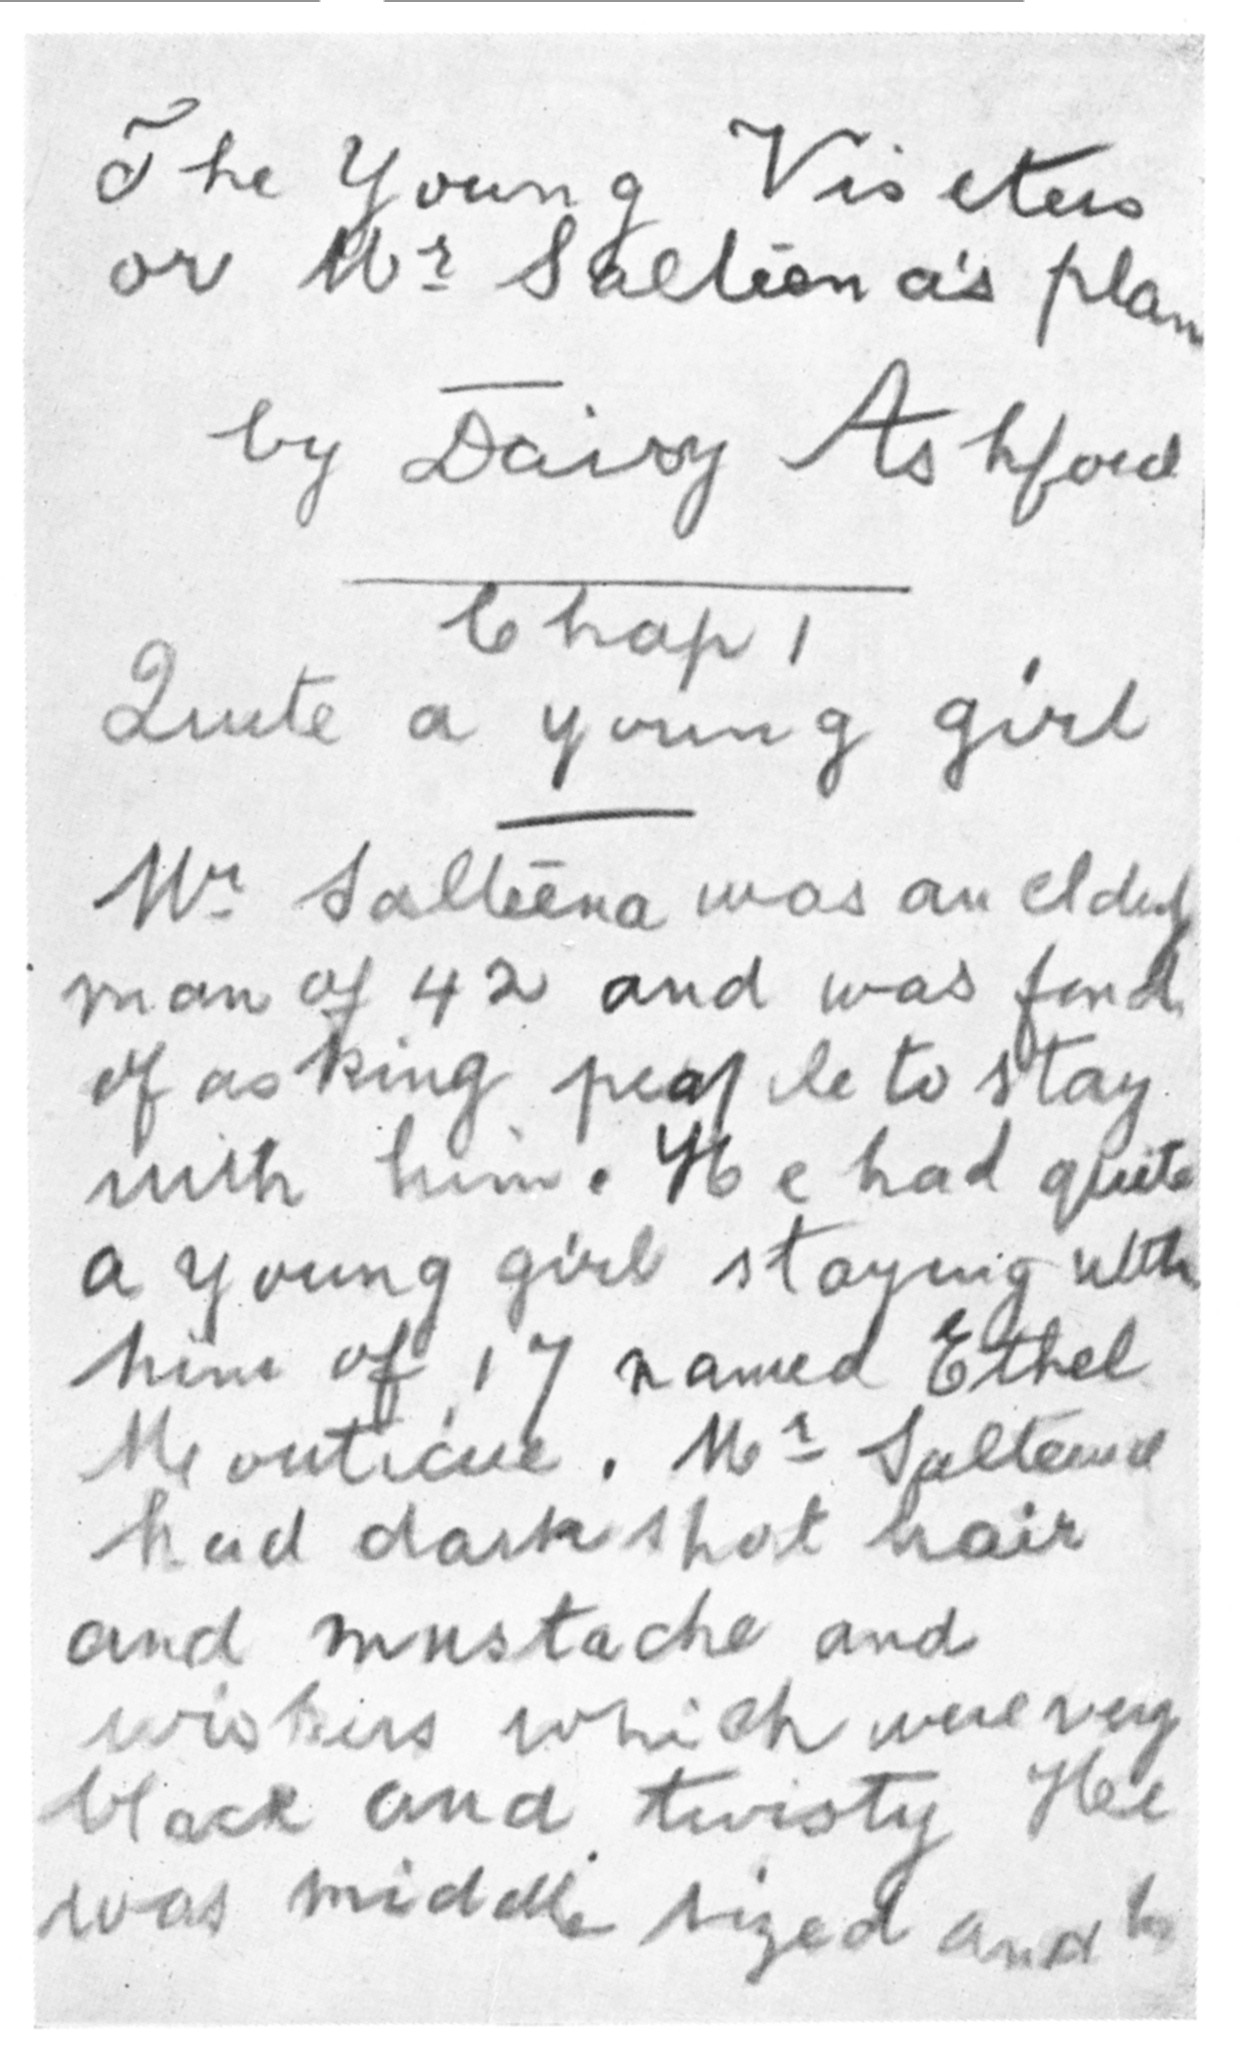 The Young Viseters
or Mr Saltēena's plan
by Daisy Ashford
Chap 1
Quite a young girl
Mr Saltēena was an elderly
man of 42 and was fond
of asking peaple to stay
with him. He had quite
a young girl staying with
him of 17 named Ethel
Monticue. Mr Salteena
had dark short hair
and mustache and
wiskers which were very
black and twisty He
was middle sized and